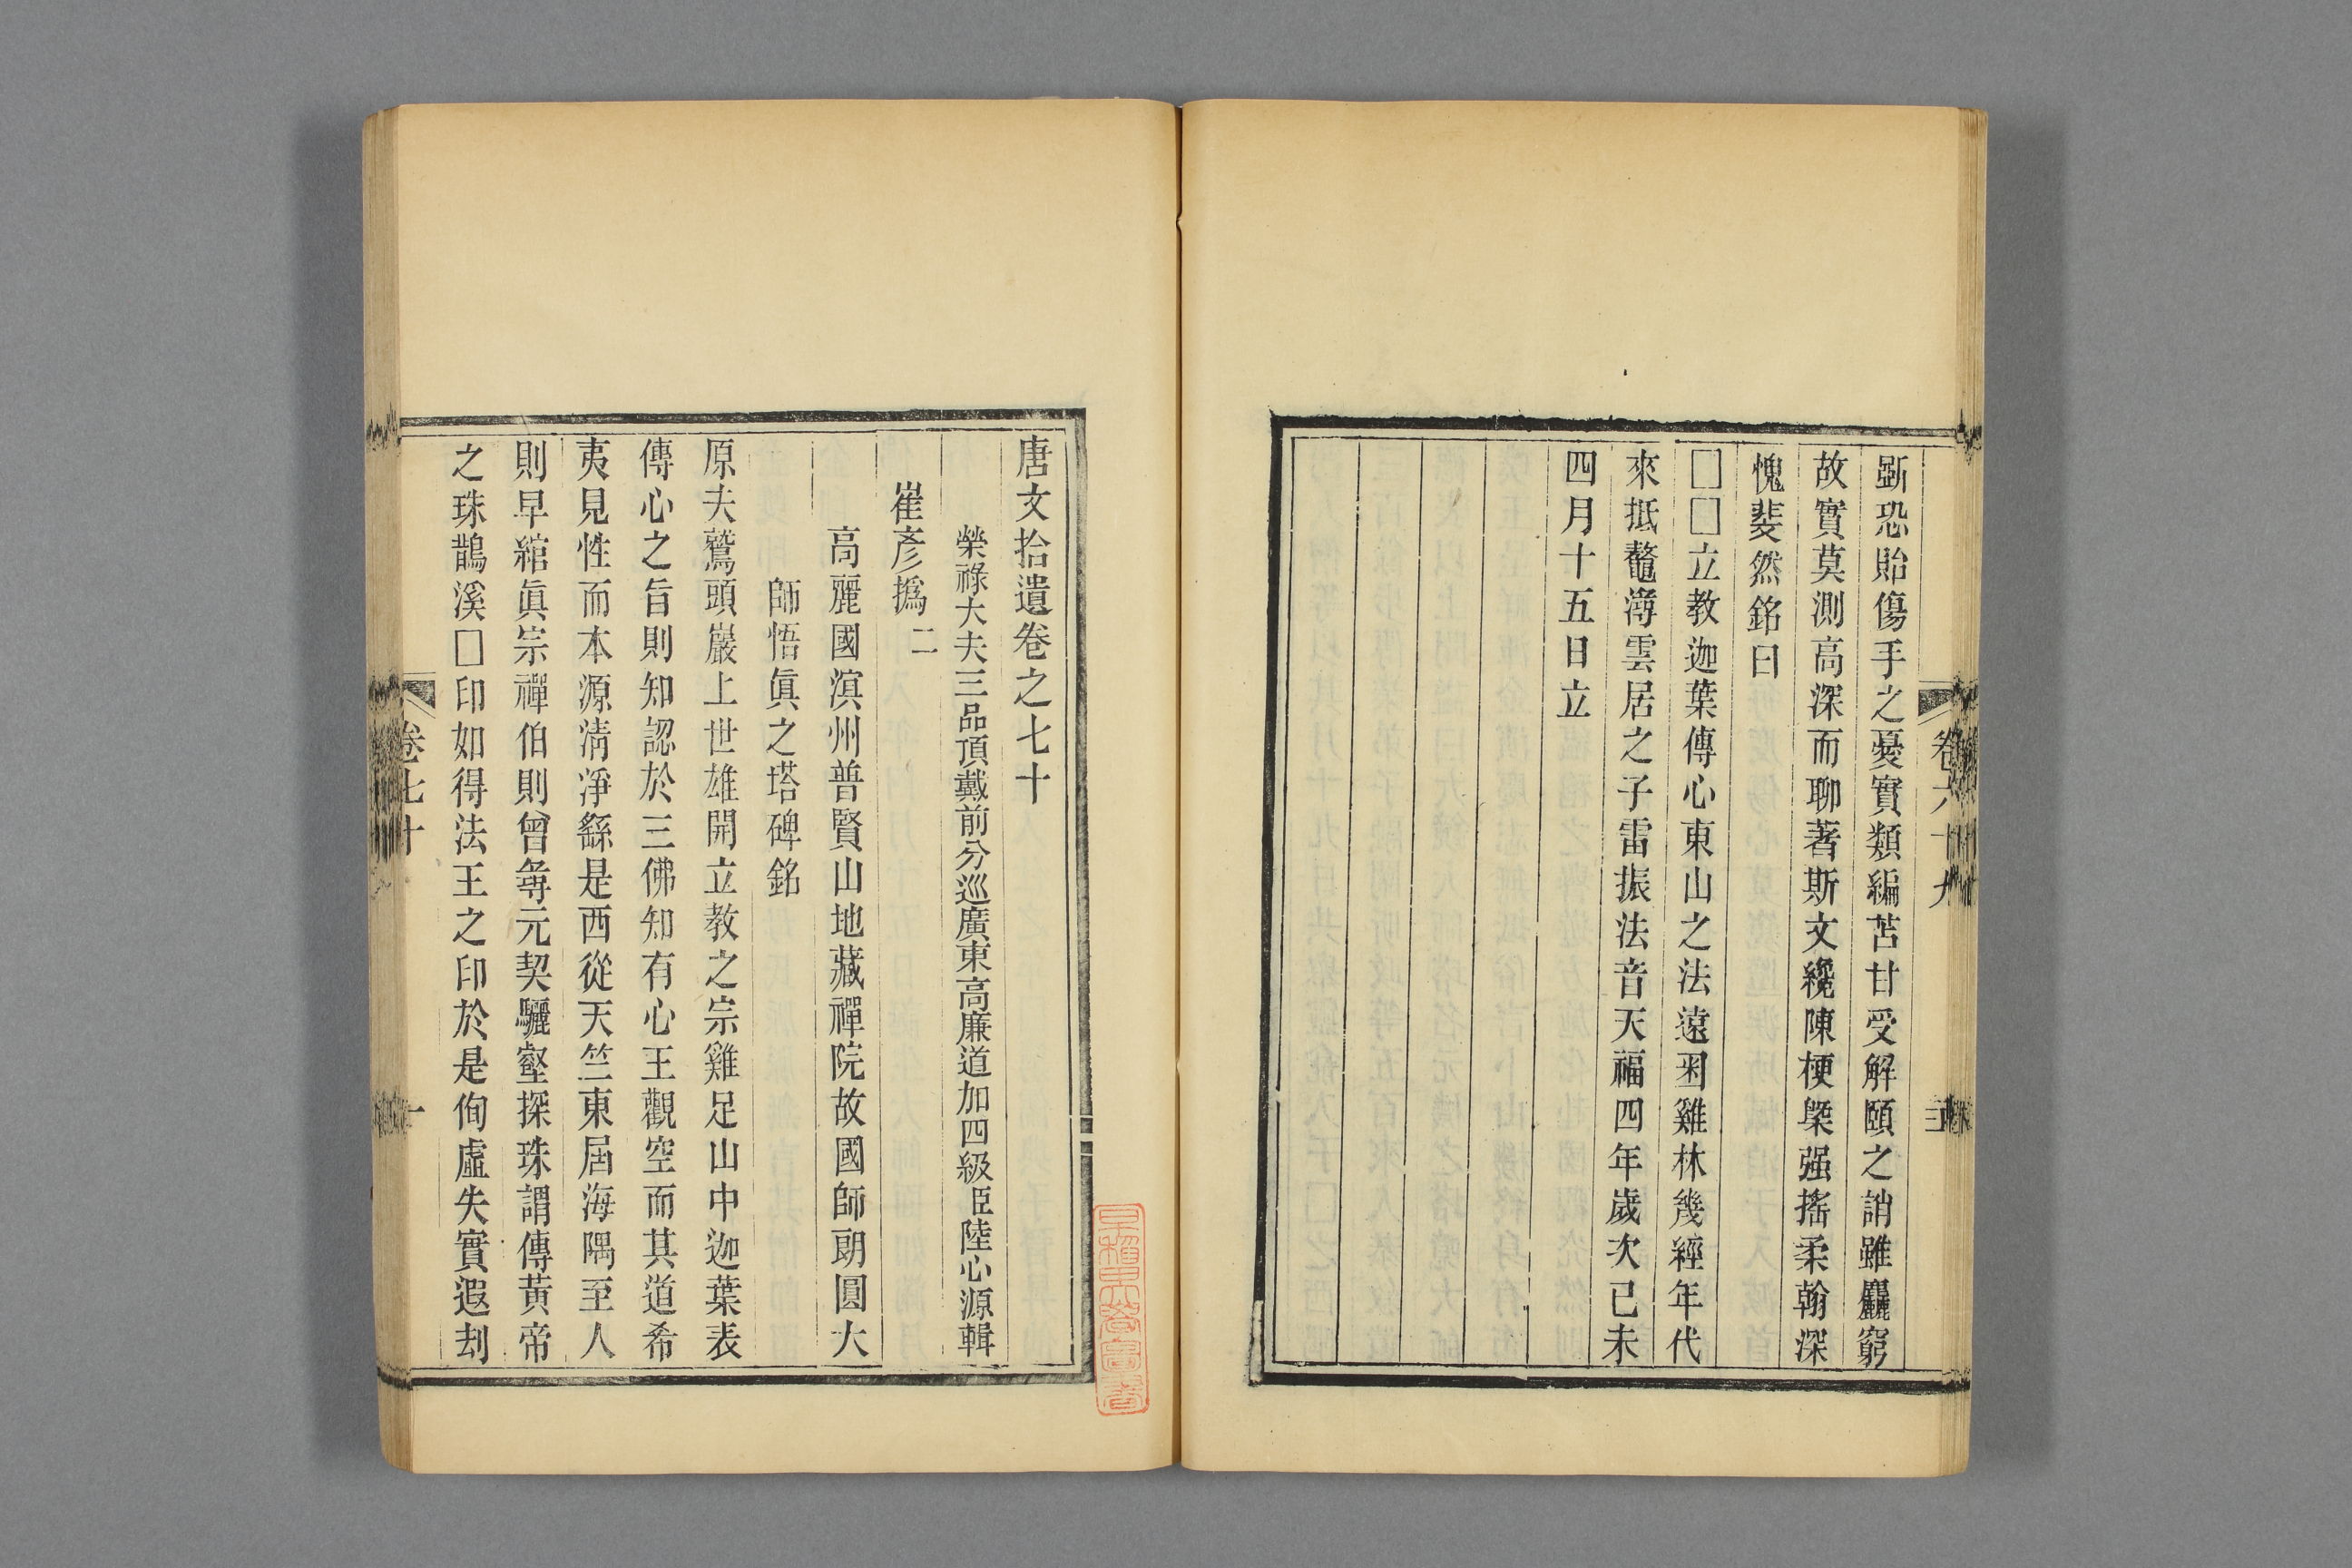 斵恐貽傷手之憂實類編苫甘受解頤之誚雖麤窮
故實莫測高深而聊著斯文纔陳梗槩强搖柔翰深
愧斐然銘曰
□□立教迦葉傳心東山之法遠𦊆雞林幾經年代
來抵鼇潯雲居之子雷振法音天福四年歲次己未
四月十五日立
卷六十九
唐文拾遺卷之七十
榮祿大夫三品頂戴前分巡廣東高廉道加四級臣陸心源輯
崔彥撝 二
高麗國溟州普賢山地藏禪院故國師朗圓大
師悟眞之塔碑銘
原夫鷲頭巖上世雄開立教之宗雞足山中迦葉表
傳心之旨則知認於三佛知有心王觀空而其道希
夷見性而本源淸淨繇是西從天竺東屆海隅至人
則早綰眞宗禪伯則曾尋元契驪壑探珠謂傳黃帝
之珠鵲溪□印如得法王之印於是侚虛失實遐刦
卷七十
一